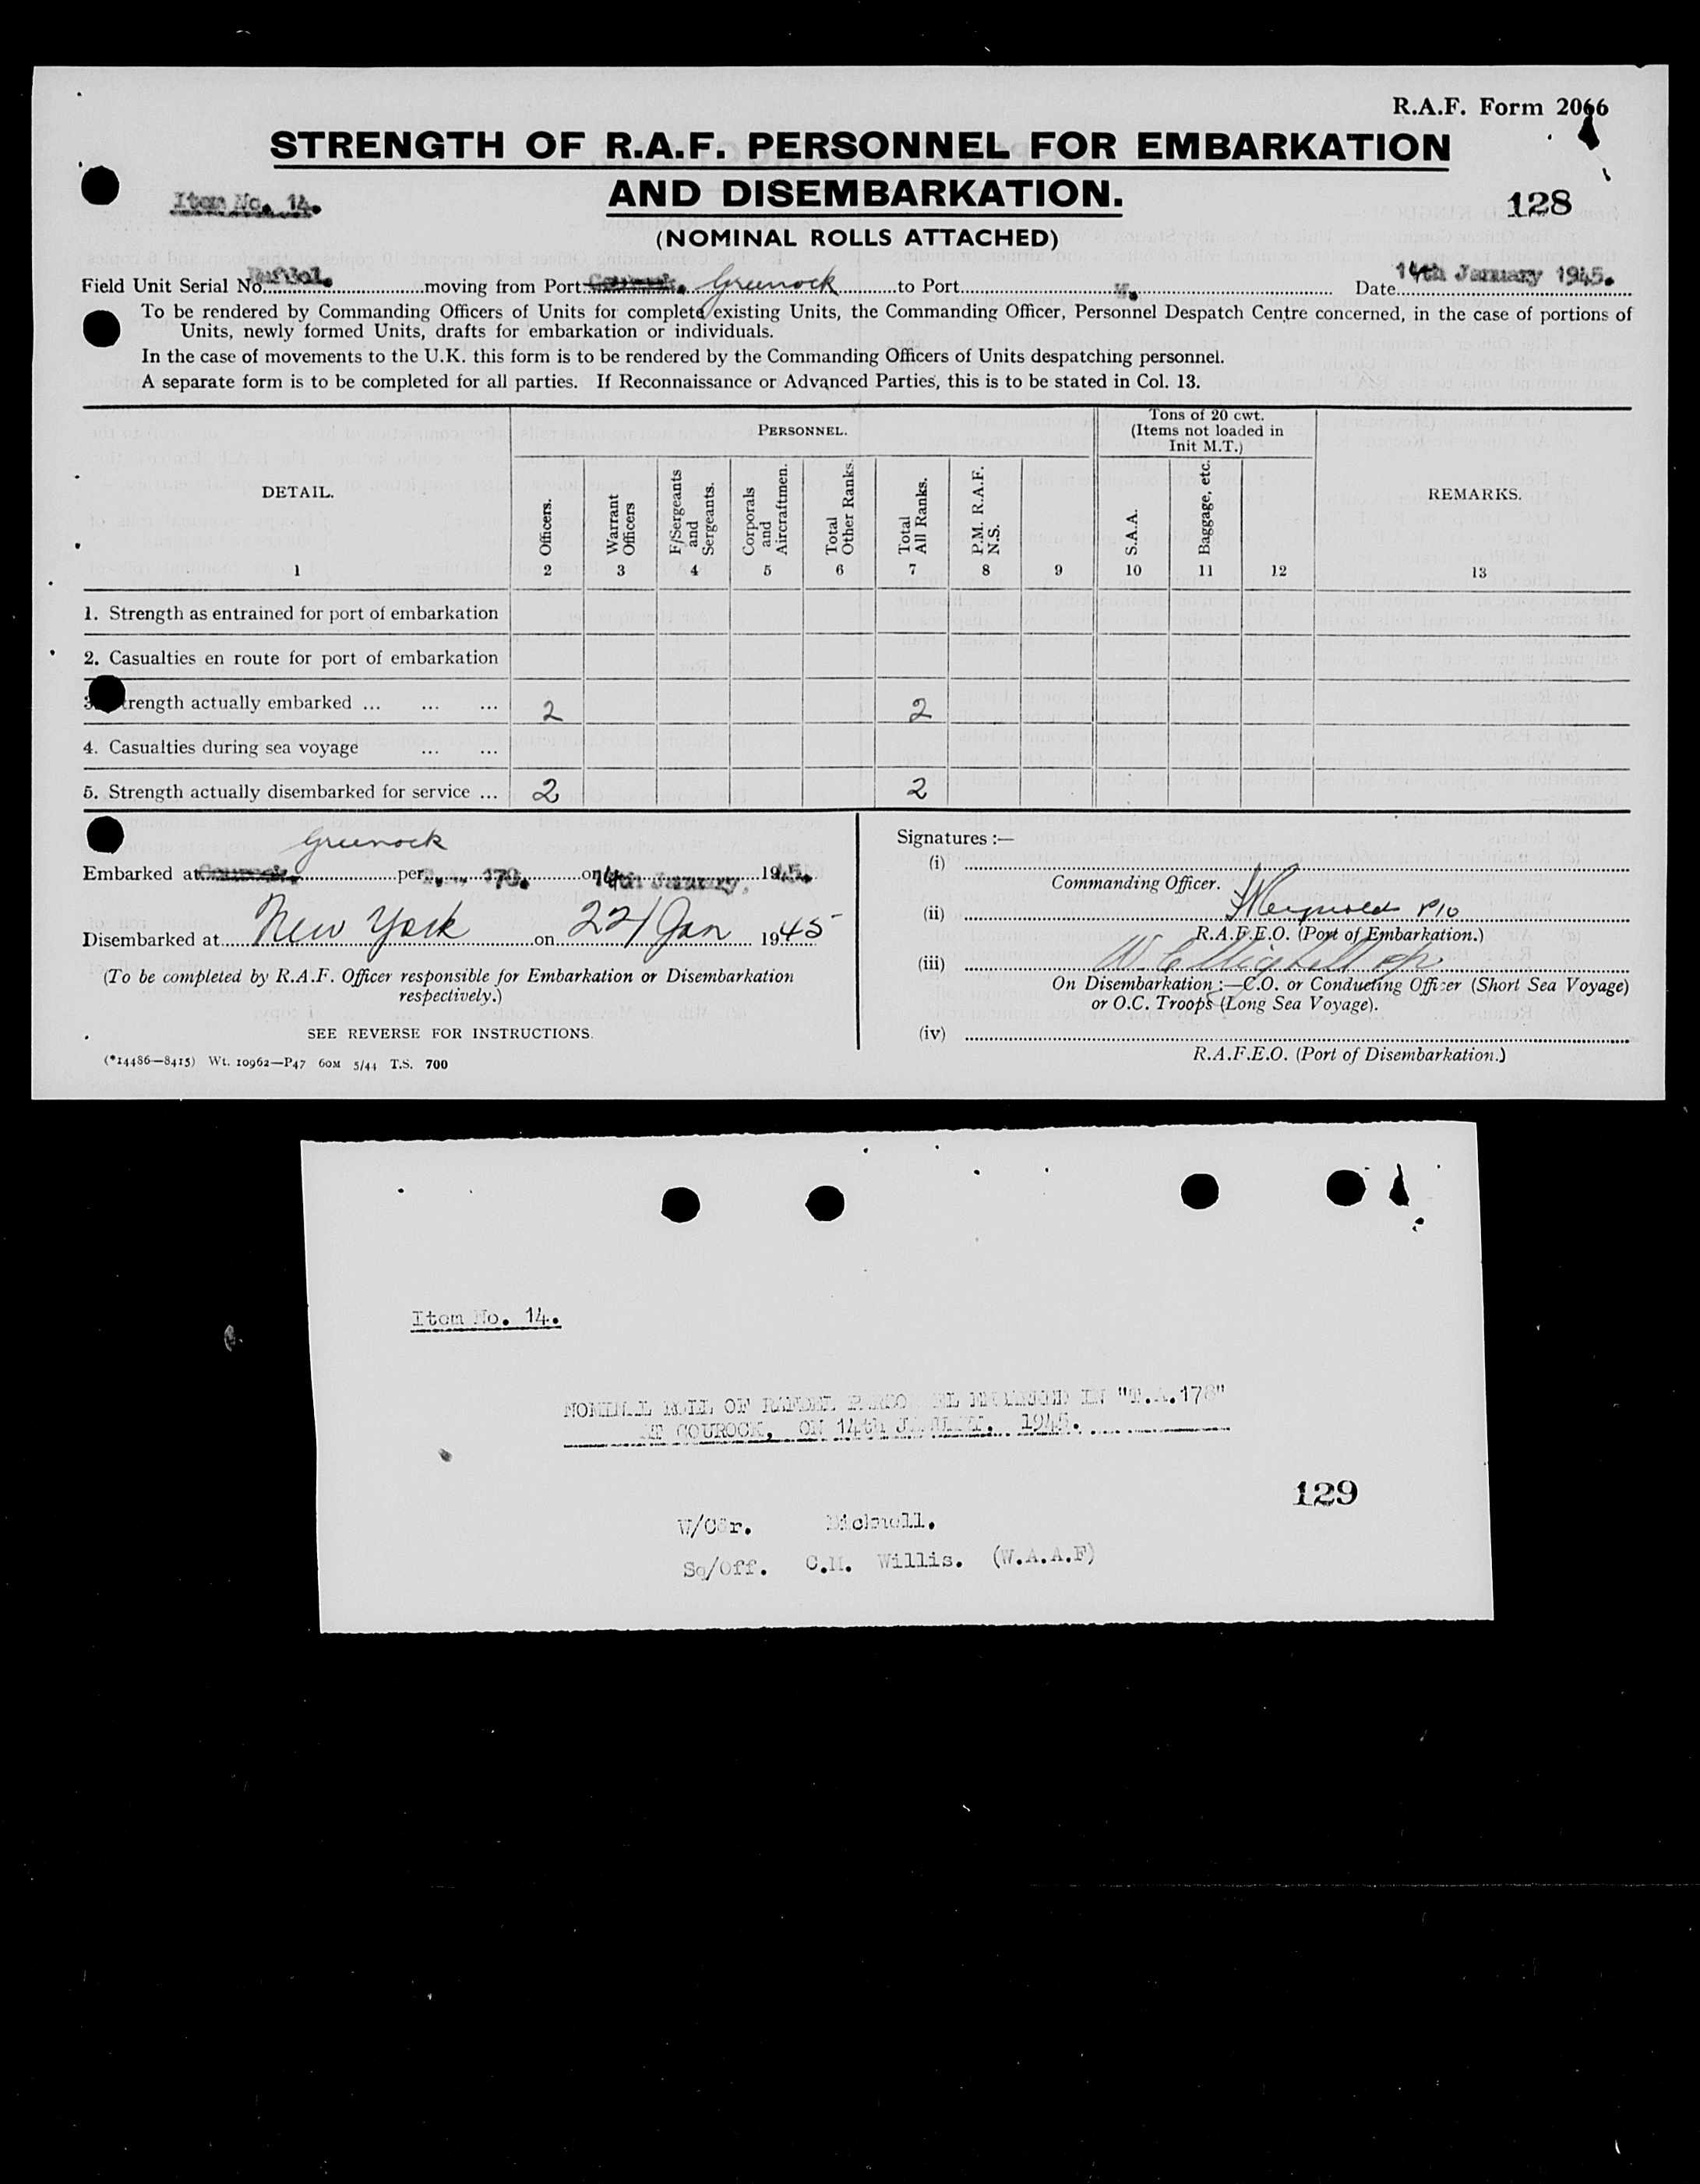 R.A.F. Form 2066
STRENGTH OF R.A.F. PERSONNEL FOR EMBARKATION
AND DISEMBARKATION.
Item No. 14.
128
(NOMINAL ROLLS ATTACHED)
Field Unit Serial No. moving from Port Gourock. Greenock to Port Date 14th January 1945.
To be rendered by Commanding Officers of Units for complete existing Units, the Commanding Officer, Personnel Despatch Centre concerned, in the case of portions of
Units, newly formed Units, drafts for embarkation or individuals.
In the case of movements to the U.K. this form is to be rendered by the Commanding Officers of Units despatching personnel.
A separate form is to be completed for all parties. If Reconnaissance or Advanced Parties, this is to be stated in Col. 13.
DETAIL.
PERSONNEL.
Tons of 20 cwt.
(Items not loaded in
Init M.T.)
REMARKS.
Officers.
Warrant
Officers
F/Sergeants
and
Sergeants.
Corporals
and
Aircraftmen.
Total
Other Ranks.
Total
All Ranks.
P.M. R.A.F.
N.S.
S.A.A.
Baggage, etc.
1 2 3 4 5 6 7 8 9 10 11 12 13
1. Strength as entrained for port of embarkation
2. Casualties en route for port of embarkation
3. Strength actually embarked ... ... ... 2 2
4. Casualties during sea voyage ... ...
5. Strength actually disembarked for service ... 2 2
Greenock
Embarked at Gourock. per 178. on 14th January, 1945.
Disembarked at New York on 22/Jan 1945
(To be completed by R.A.F. Officer responsible for Embarkation or Disembarkation
respectively.)
SEE REVERSE FOR INSTRUCTIONS.
(*14486—8415) Wt. 10962—P47 60M 5/44 T.S. 700
Signatures :—
(i)
Commanding Officer.
(ii) P/O
R.A.F.E.O. (Port of Embarkation.)
(iii)
On Disembarkation :—C.O. or Conducting Officer (Short Sea Voyage)
or O.C. Troops (Long Sea Voyage).
(iv)
R.A.F.E.O. (Port of Disembarkation.)
Item No. 14.
NOMINAL ROLL OF RAFDEL PERSONNEL EMBARKED IN "T.A.178"
AT GOUROCK, ON 14th JANUARY, 1945.
129
W/Cdr. Bicknell.
Sq/Off. C.M. Willis. (W.A.A.F)